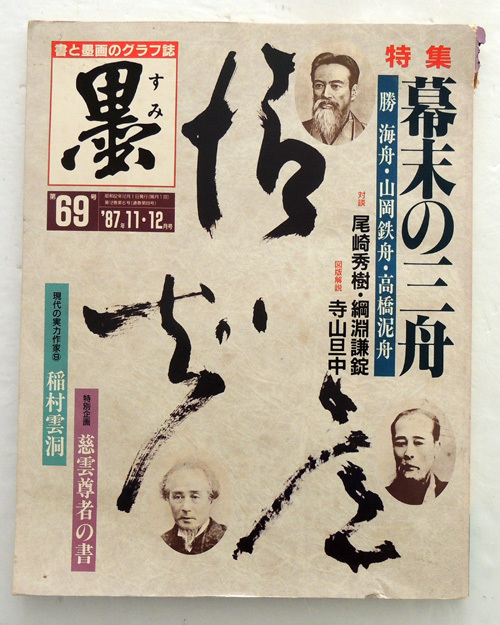 書と墨画のグラフ誌
墨
すみ
第69号
'87年11・12月号
特集
幕末の三舟
勝 海舟・山岡鉄舟・高橋泥舟
対談
尾崎秀樹・綱淵謙錠
図版解説
寺山旦中
現代の実力作家⑬
稲村雲洞
特別企画
慈雲尊者の書